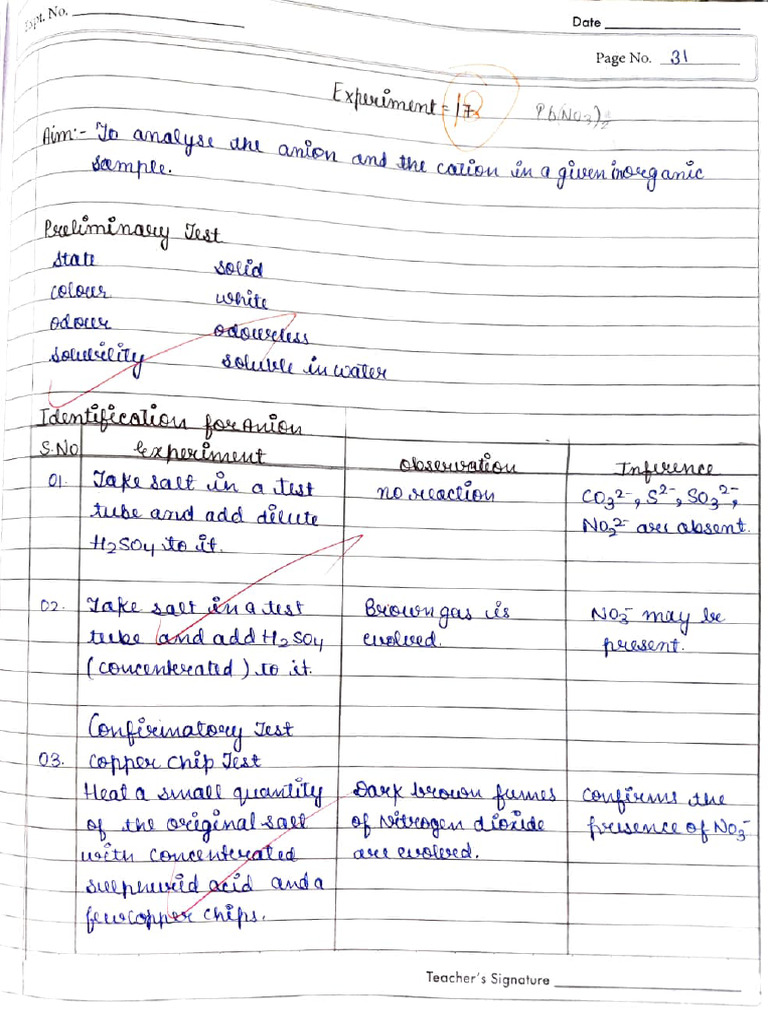 Expt. No.
Date
Page No. 31
Experiment = 17 Pb(NO3)2
Aim:- To analyse the anion and the cation in a given inorganic
sample.
Preliminary Test
state solid
colour white
odour odourless
solubility soluble in water
Identification for Anion
S.No Experiment Observation Inference
01. Take salt in a test no reaction CO3²⁻, S²⁻, SO3²⁻,
tube and add dilute NO2²⁻ are absent.
H2SO4 to it.
02. Take salt in a test Brown gas is NO3⁻ may be
tube and add H2SO4 evolved. present.
(concentrated) to it.
Confirmatory Test
03. Copper Chip Test
Heat a small quantity Dark brown fumes Confirms the
of the original salt of Nitrogen dioxide presence of NO3⁻
with concentrated are evolved.
sulphuric acid and a
few copper chips.
Teacher's Signature